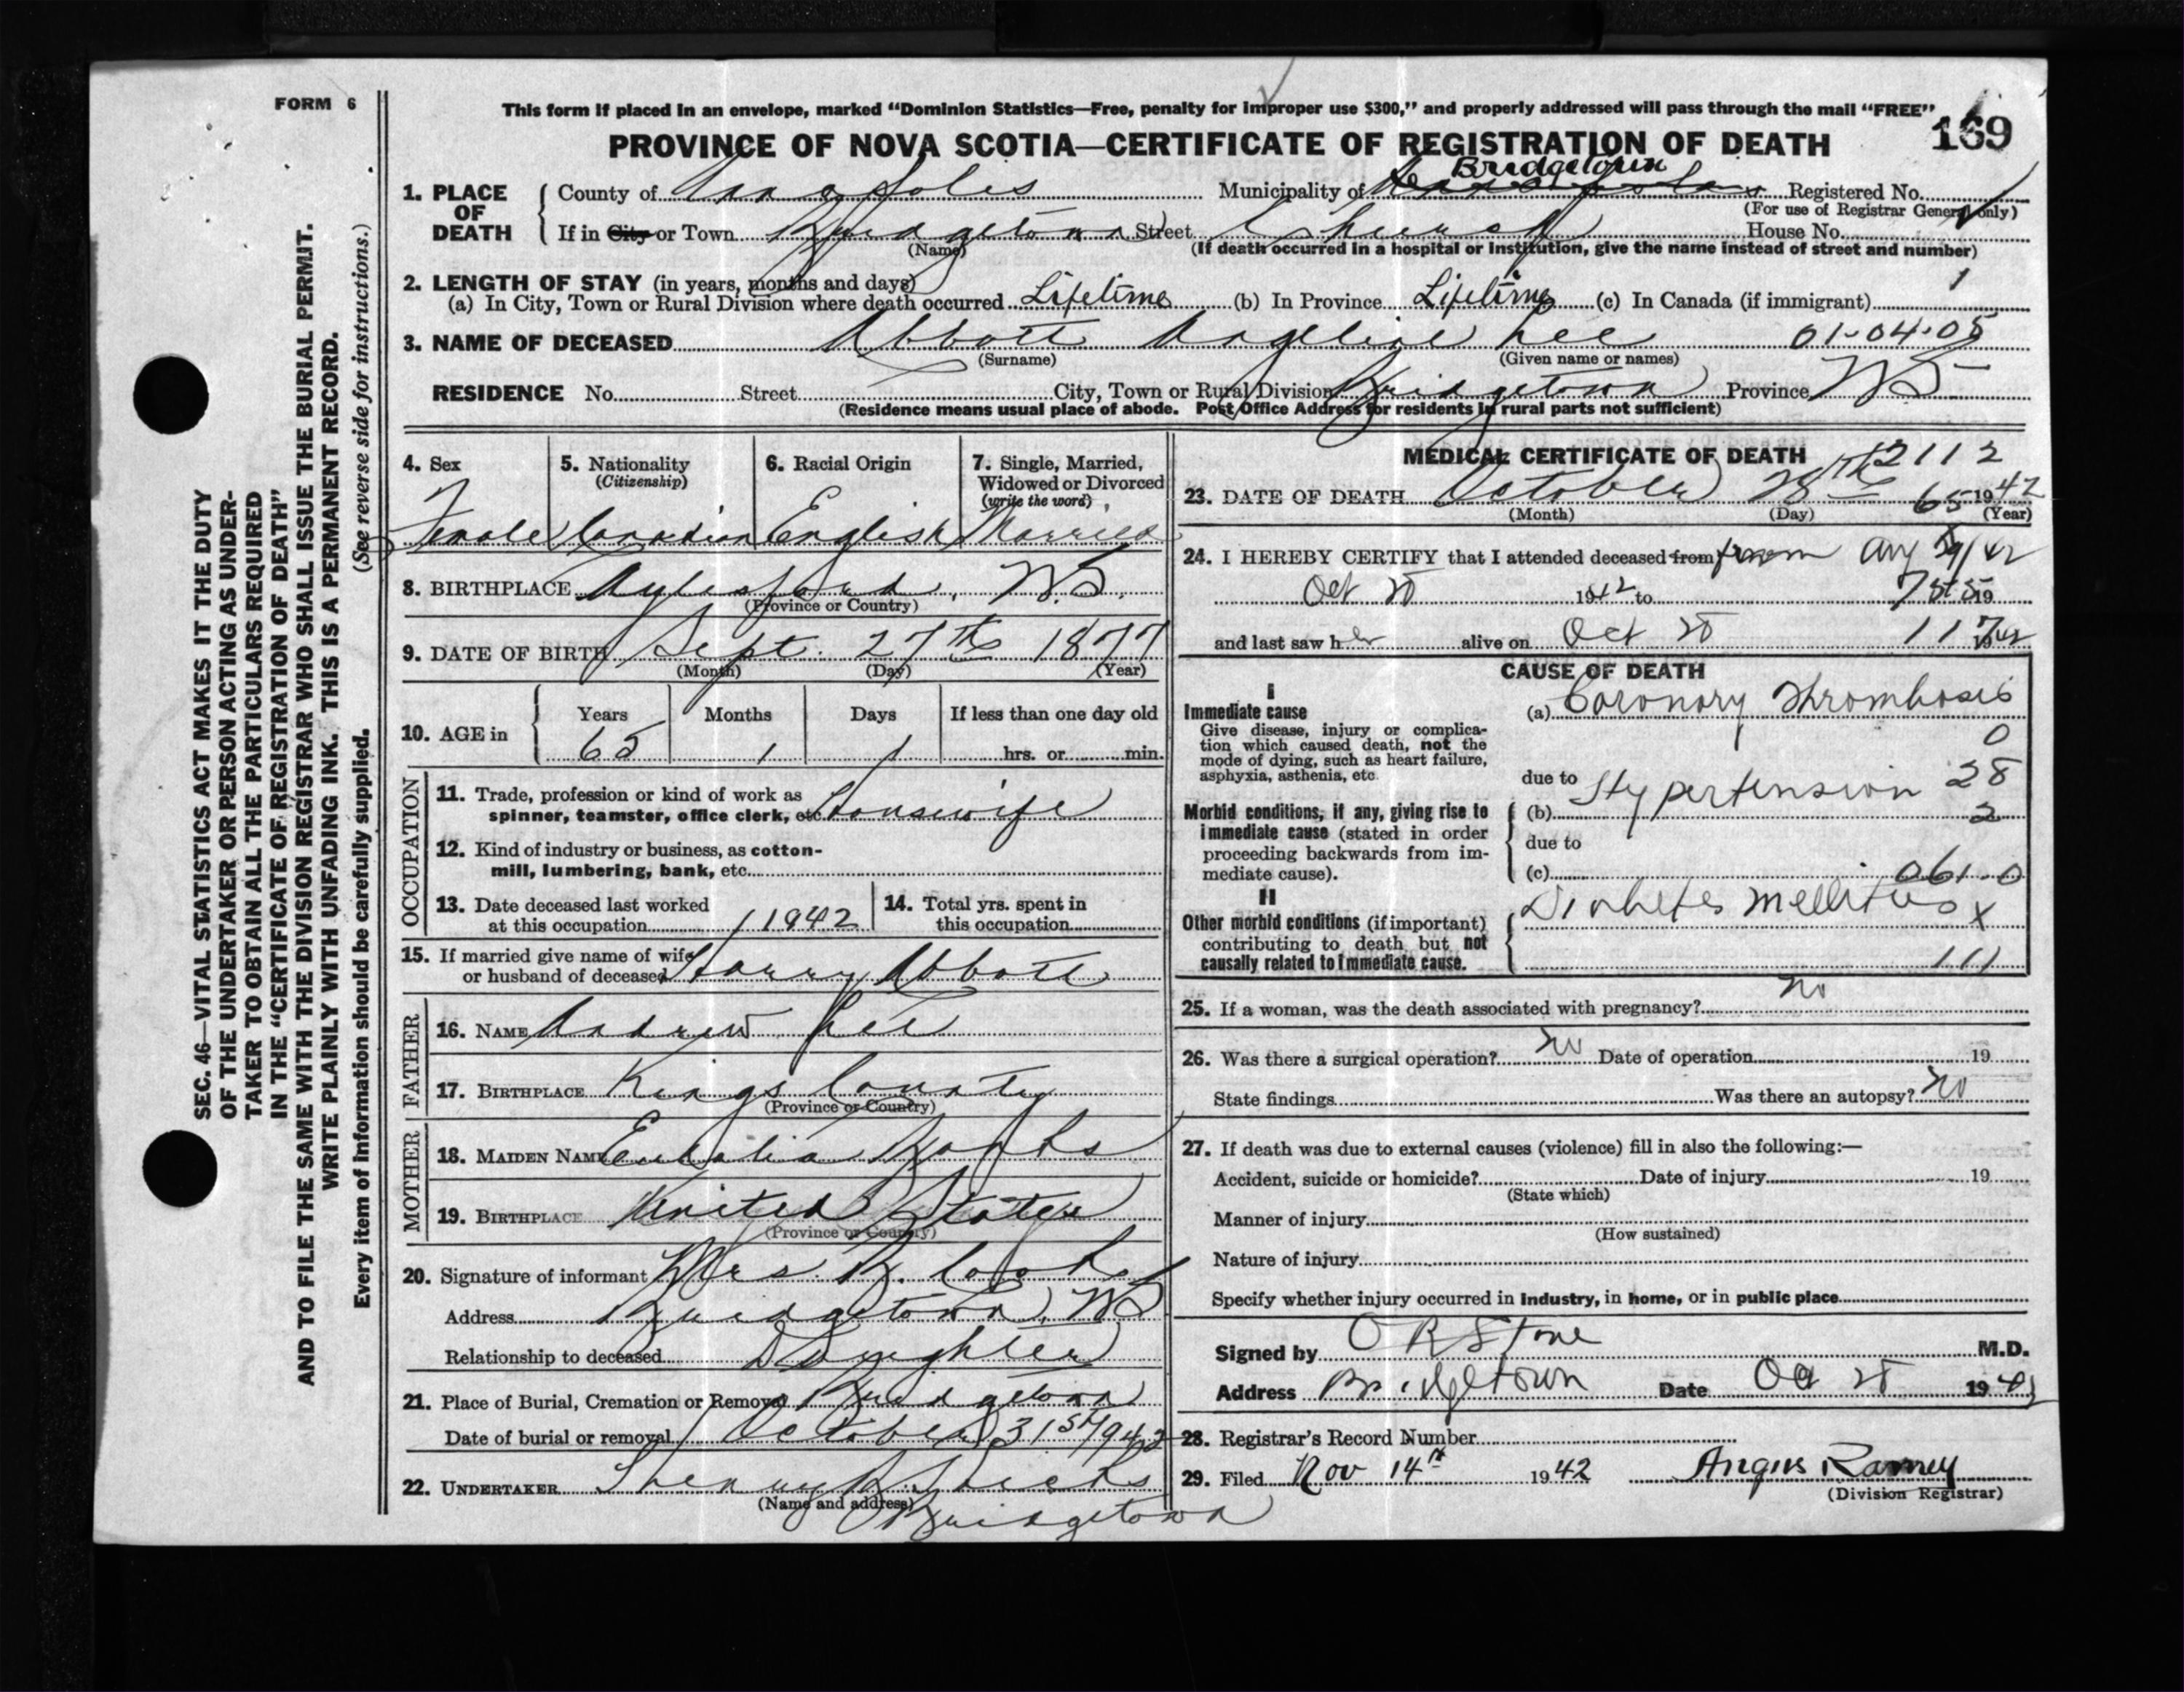 FORM 6
This form if placed in an envelope, marked “Dominion Statistics—Free, penalty for improper use $300,” and properly addressed will pass through the mail “FREE”
169
PROVINCE OF NOVA SCOTIA—CERTIFICATE OF REGISTRATION OF DEATH
Bridgetown
1. PLACE OF DEATH County of Annapolis Municipality of Registered No.
(For use of Registrar General only)
If in City or Town Bridgetown Street Church House No.
(Name) (If death occurred in a hospital or institution, give the name instead of street and number)
2. LENGTH OF STAY (in years, months and days) 1
(a) In City, Town or Rural Division where death occurred Lifetime (b) In Province Lifetime (c) In Canada (if immigrant)
3. NAME OF DECEASED Abbott Angeline Lee 01-04-05
(Surname) (Given name or names)
RESIDENCE No. Street City, Town or Rural Division Bridgetown Province NS
(Residence means usual place of abode. Post Office Address for residents in rural parts not sufficient)
4. Sex 5. Nationality (Citizenship) 6. Racial Origin 7. Single, Married, Widowed or Divorced (write the word)
Female Canadian English Married
8. BIRTHPLACE Aylesford, N.S.
(Province or Country)
9. DATE OF BIRTH Sept. 27th 1877
(Month) (Day) (Year)
10. AGE in Years Months Days If less than one day old
65 1 1 hrs. or min.
OCCUPATION
11. Trade, profession or kind of work as
spinner, teamster, office clerk, etc. Housewife
12. Kind of industry or business, as cotton-
mill, lumbering, bank, etc.
13. Date deceased last worked 14. Total yrs. spent in
at this occupation 1942 this occupation
15. If married give name of wife
or husband of deceased Harry Abbott
FATHER
16. NAME Andrew Lee
17. BIRTHPLACE Kings County
(Province or Country)
MOTHER
18. MAIDEN NAME Eudalia Banks
19. BIRTHPLACE United States
(Province or Country)
20. Signature of informant Mrs. B. Cook
Address Bridgetown, NS
Relationship to deceased Daughter
21. Place of Burial, Cremation or Removal Bridgetown
Date of burial or removal October 31st 1942
22. UNDERTAKER Hicks
(Name and address)
Bridgetown
MEDICAL CERTIFICATE OF DEATH 2112
23. DATE OF DEATH October 28th 65 1942
(Month) (Day) (Year)
24. I HEREBY CERTIFY that I attended deceased from from Aug
Oct 28 1942 to 19
and last saw her alive on Oct 28 1942
CAUSE OF DEATH
I
Immediate cause
Give disease, injury or complica-
tion which caused death, not the
mode of dying, such as heart failure,
asphyxia, asthenia, etc.
(a) Coronary Thrombosis
0
due to Hypertension 28
Morbid conditions, if any, giving rise to
immediate cause (stated in order
proceeding backwards from im-
mediate cause).
(b) 2
due to
(c) 061.0
II
Other morbid conditions (if important)
contributing to death but not
causally related to immediate cause.
Diabetes Mellitus x
111
25. If a woman, was the death associated with pregnancy? no
26. Was there a surgical operation? no Date of operation 19
State findings Was there an autopsy? no
27. If death was due to external causes (violence) fill in also the following:—
Accident, suicide or homicide? Date of injury 19
(State which)
Manner of injury
(How sustained)
Nature of injury
Specify whether injury occurred in industry, in home, or in public place
Signed by O R Stone M.D.
Address Bridgetown Date Oct 28 1942
28. Registrar's Record Number
29. Filed Nov 14th 1942 Angus Ramey
(Division Registrar)
SEC. 46—VITAL STATISTICS ACT MAKES IT THE DUTY
OF THE UNDERTAKER OR PERSON ACTING AS UNDER-
TAKER TO OBTAIN ALL THE PARTICULARS REQUIRED
IN THE “CERTIFICATE OF REGISTRATION OF DEATH”
AND TO FILE THE SAME WITH THE DIVISION REGISTRAR WHO SHALL ISSUE THE BURIAL PERMIT.
WRITE PLAINLY WITH UNFADING INK. THIS IS A PERMANENT RECORD.
Every item of information should be carefully supplied. (See reverse side for instructions.)